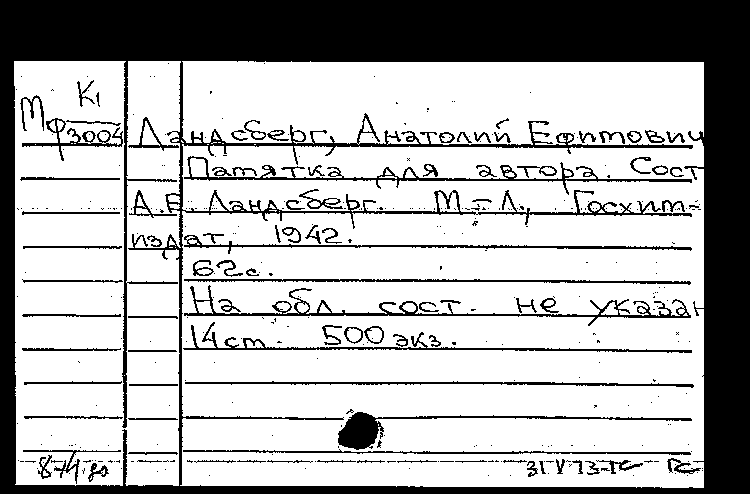 К1
Мф 3004 Ландсберг, Анатолий Ефимович
Памятка для автора. Сост.
А.Е. Ландсберг. М-Л., Госхим-
издат, 1942.
62с.
На обл. сост. не указан
14ст. 500 экз.
31 V 73